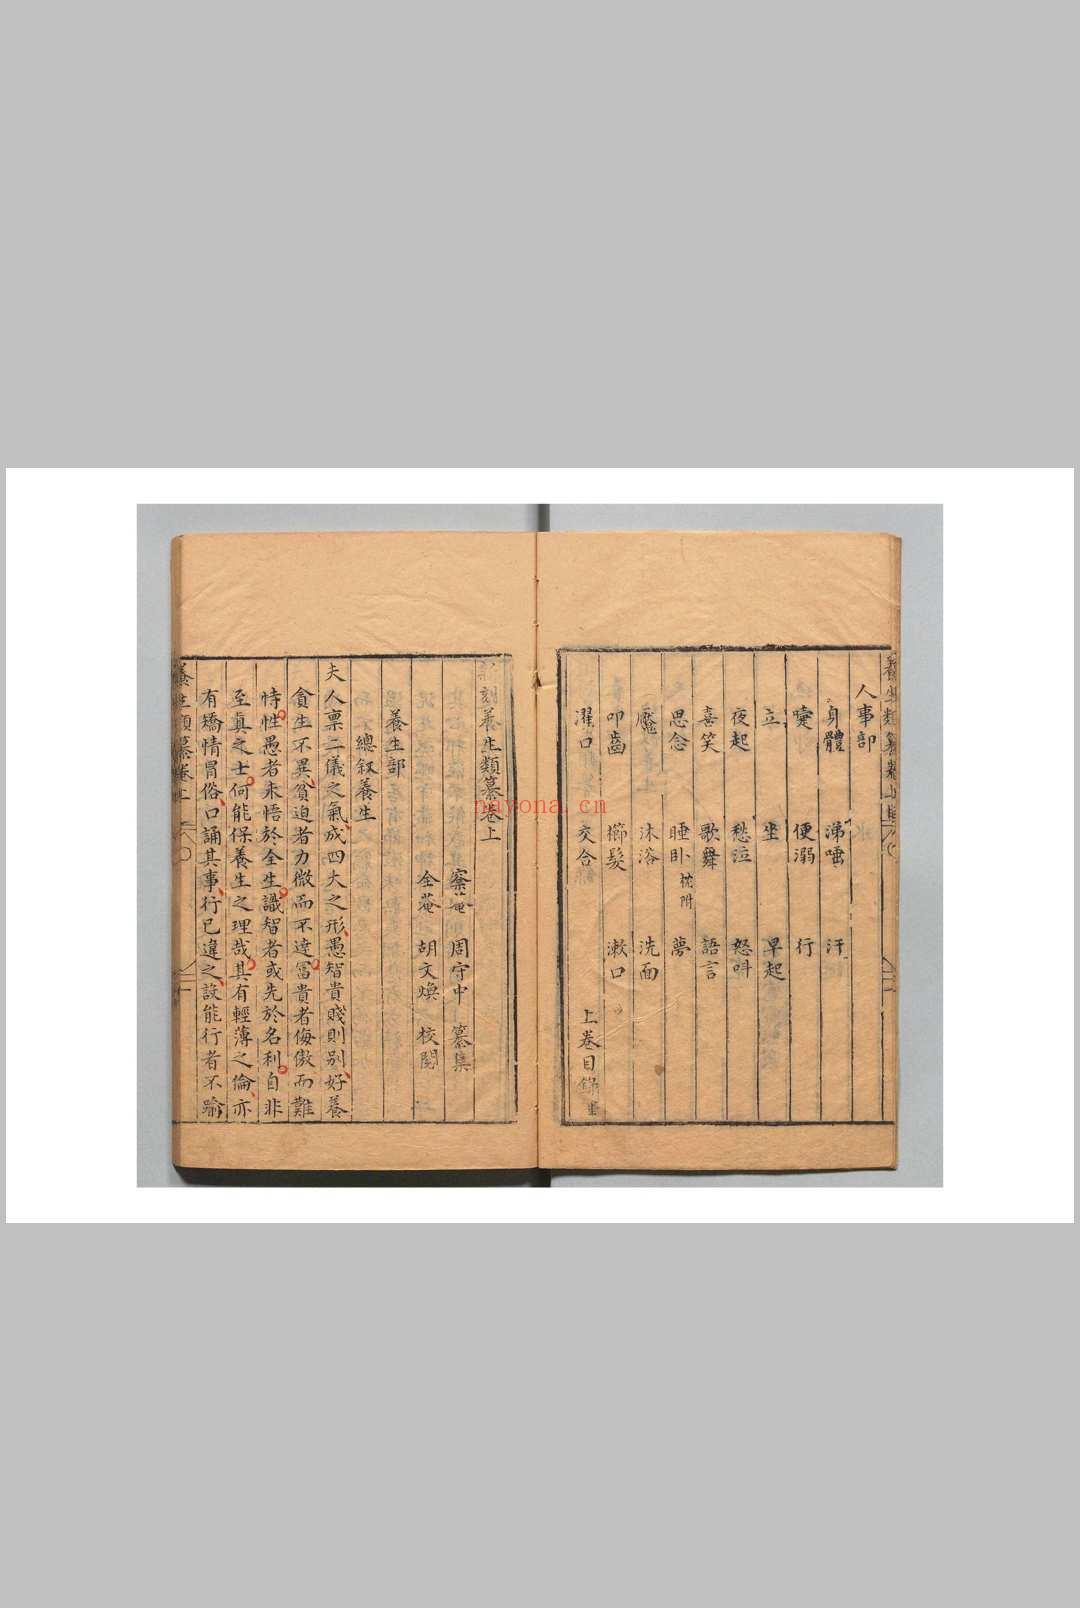 養生類纂卷上目
人事部
身體 涕唾 汗
嚏 便溺 行
立 坐 早起
夜起 愁泣 怒嗔
喜笑 歌舞 語言
思念 睡臥 枕附 夢
魘 沐浴 洗面
叩齒 櫛髮 漱口
濯口 交合
上卷目錄畢
新刻養生類纂卷上
周守中 纂集
全菴 胡文煥 校閱
養生部
總叙養生
夫人禀二儀之氣成四大之形愚智貴賤則别好養
貪生不異貧迫者力微而不達冨貴者侮傲而難
恃性愚者未悟於全生識智者或先於名利自非
至真之士何能保養生之理哉其有輕薄之倫亦
有矯情冒俗口誦其事行已違之設能行者不踰
養生類纂卷上
nayona.cn